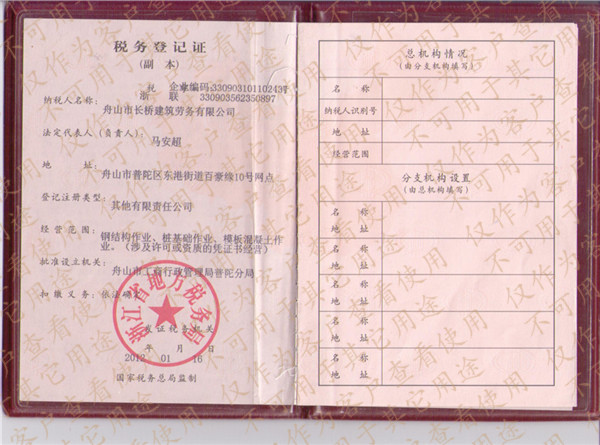 税务登记证
(副本)
税 企业编码:3309031011024​37
浙 联 330903562350897
纳税人名称:
舟山市长桥建筑劳务有限公司
法定代表人(负责人):
马安超
地 址:
舟山市普陀区东港街道百豪缘10号网点
登记注册类型:
其他有限责任公司
经营范围:
钢结构作业、桩基础作业、模板混凝土作
业。(涉及许可或资质的凭证书经营)
批准设立机关:
舟山市工商行政管理局普陀分局
扣缴义务:依法确定
浙江省地方税务局
发证税务机关
年 月 日
2012 01 16
国家税务总局监制
总机构情况
(由分支机构填写)
名 称
纳税人识别号
地 址
经营范围
分支机构设置
(由总机构填写)
名 称
地 址
名 称
地 址
名 称
地 址
名 称
地 址
名 称
地 址
仅作为客户查看使用
不可用于其它用途